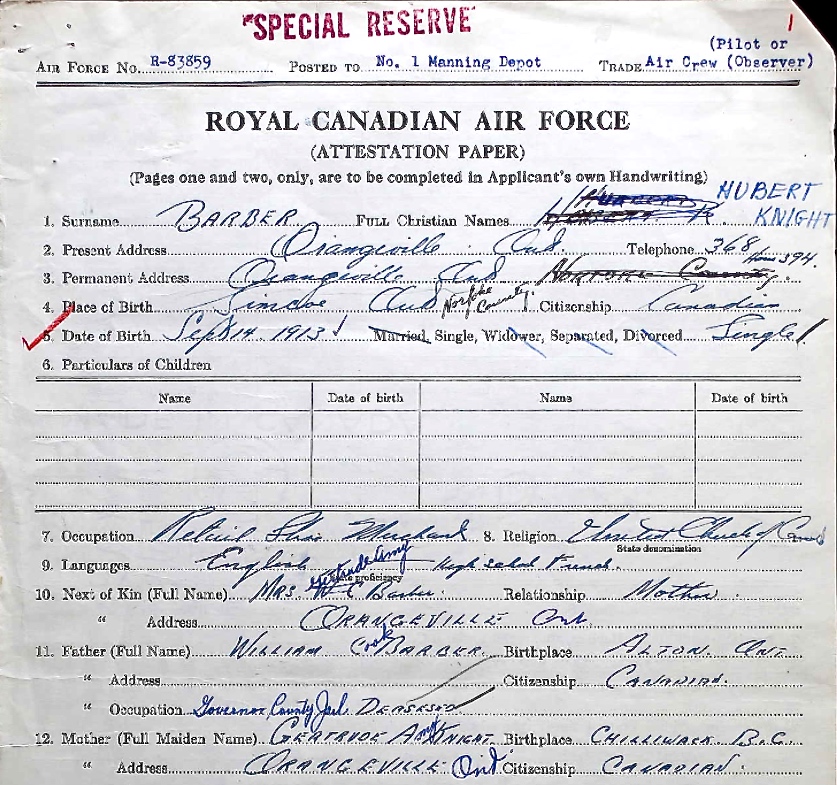 "SPECIAL RESERVE"
1
(Pilot or
AIR FORCE NO. R-83859 POSTED TO No. 1 Manning Depot TRADE Air Crew (Observer)
ROYAL CANADIAN AIR FORCE
(ATTESTATION PAPER)
(Pages one and two, only, are to be completed in Applicant's own Handwriting)
HUBERT
1. Surname BARBER FULL Christian Names KNIGHT
2. Present Address Orangeville Ont. Telephone 368
3. Permanent Address Orangeville Ont Norfolk County 394.
4. Place of Birth Simcoe Ont Norfolk County. Citizenship Canadian
5. Date of Birth Sept 14 1913 Married, Single, Widower, Separated, Divorced Single
6. Particulars of Children
Name Date of birth Name Date of birth
7. Occupation Retail Merchant 8. Religion United Church of Canada
State denomination
9. Languages English High School French.
proficiency
Gertrude Amy
10. Next of Kin (Full Name) Mrs. W C Barber. Relationship Mother.
" Address ORANGEVILLE Ont.
11. Father (Full Name) WILLIAM Cook BARBER. Birthplace ALTON. ONT
" Address Citizenship CANADIAN.
" Occupation Governor County Jail. DEASESED
12. Mother (Full Maiden Name) GERTRUDE Amy KNIGHT Birthplace CHILLIWACK B.C.
" Address ORANGEVILLE Ont Citizenship CANADIAN.